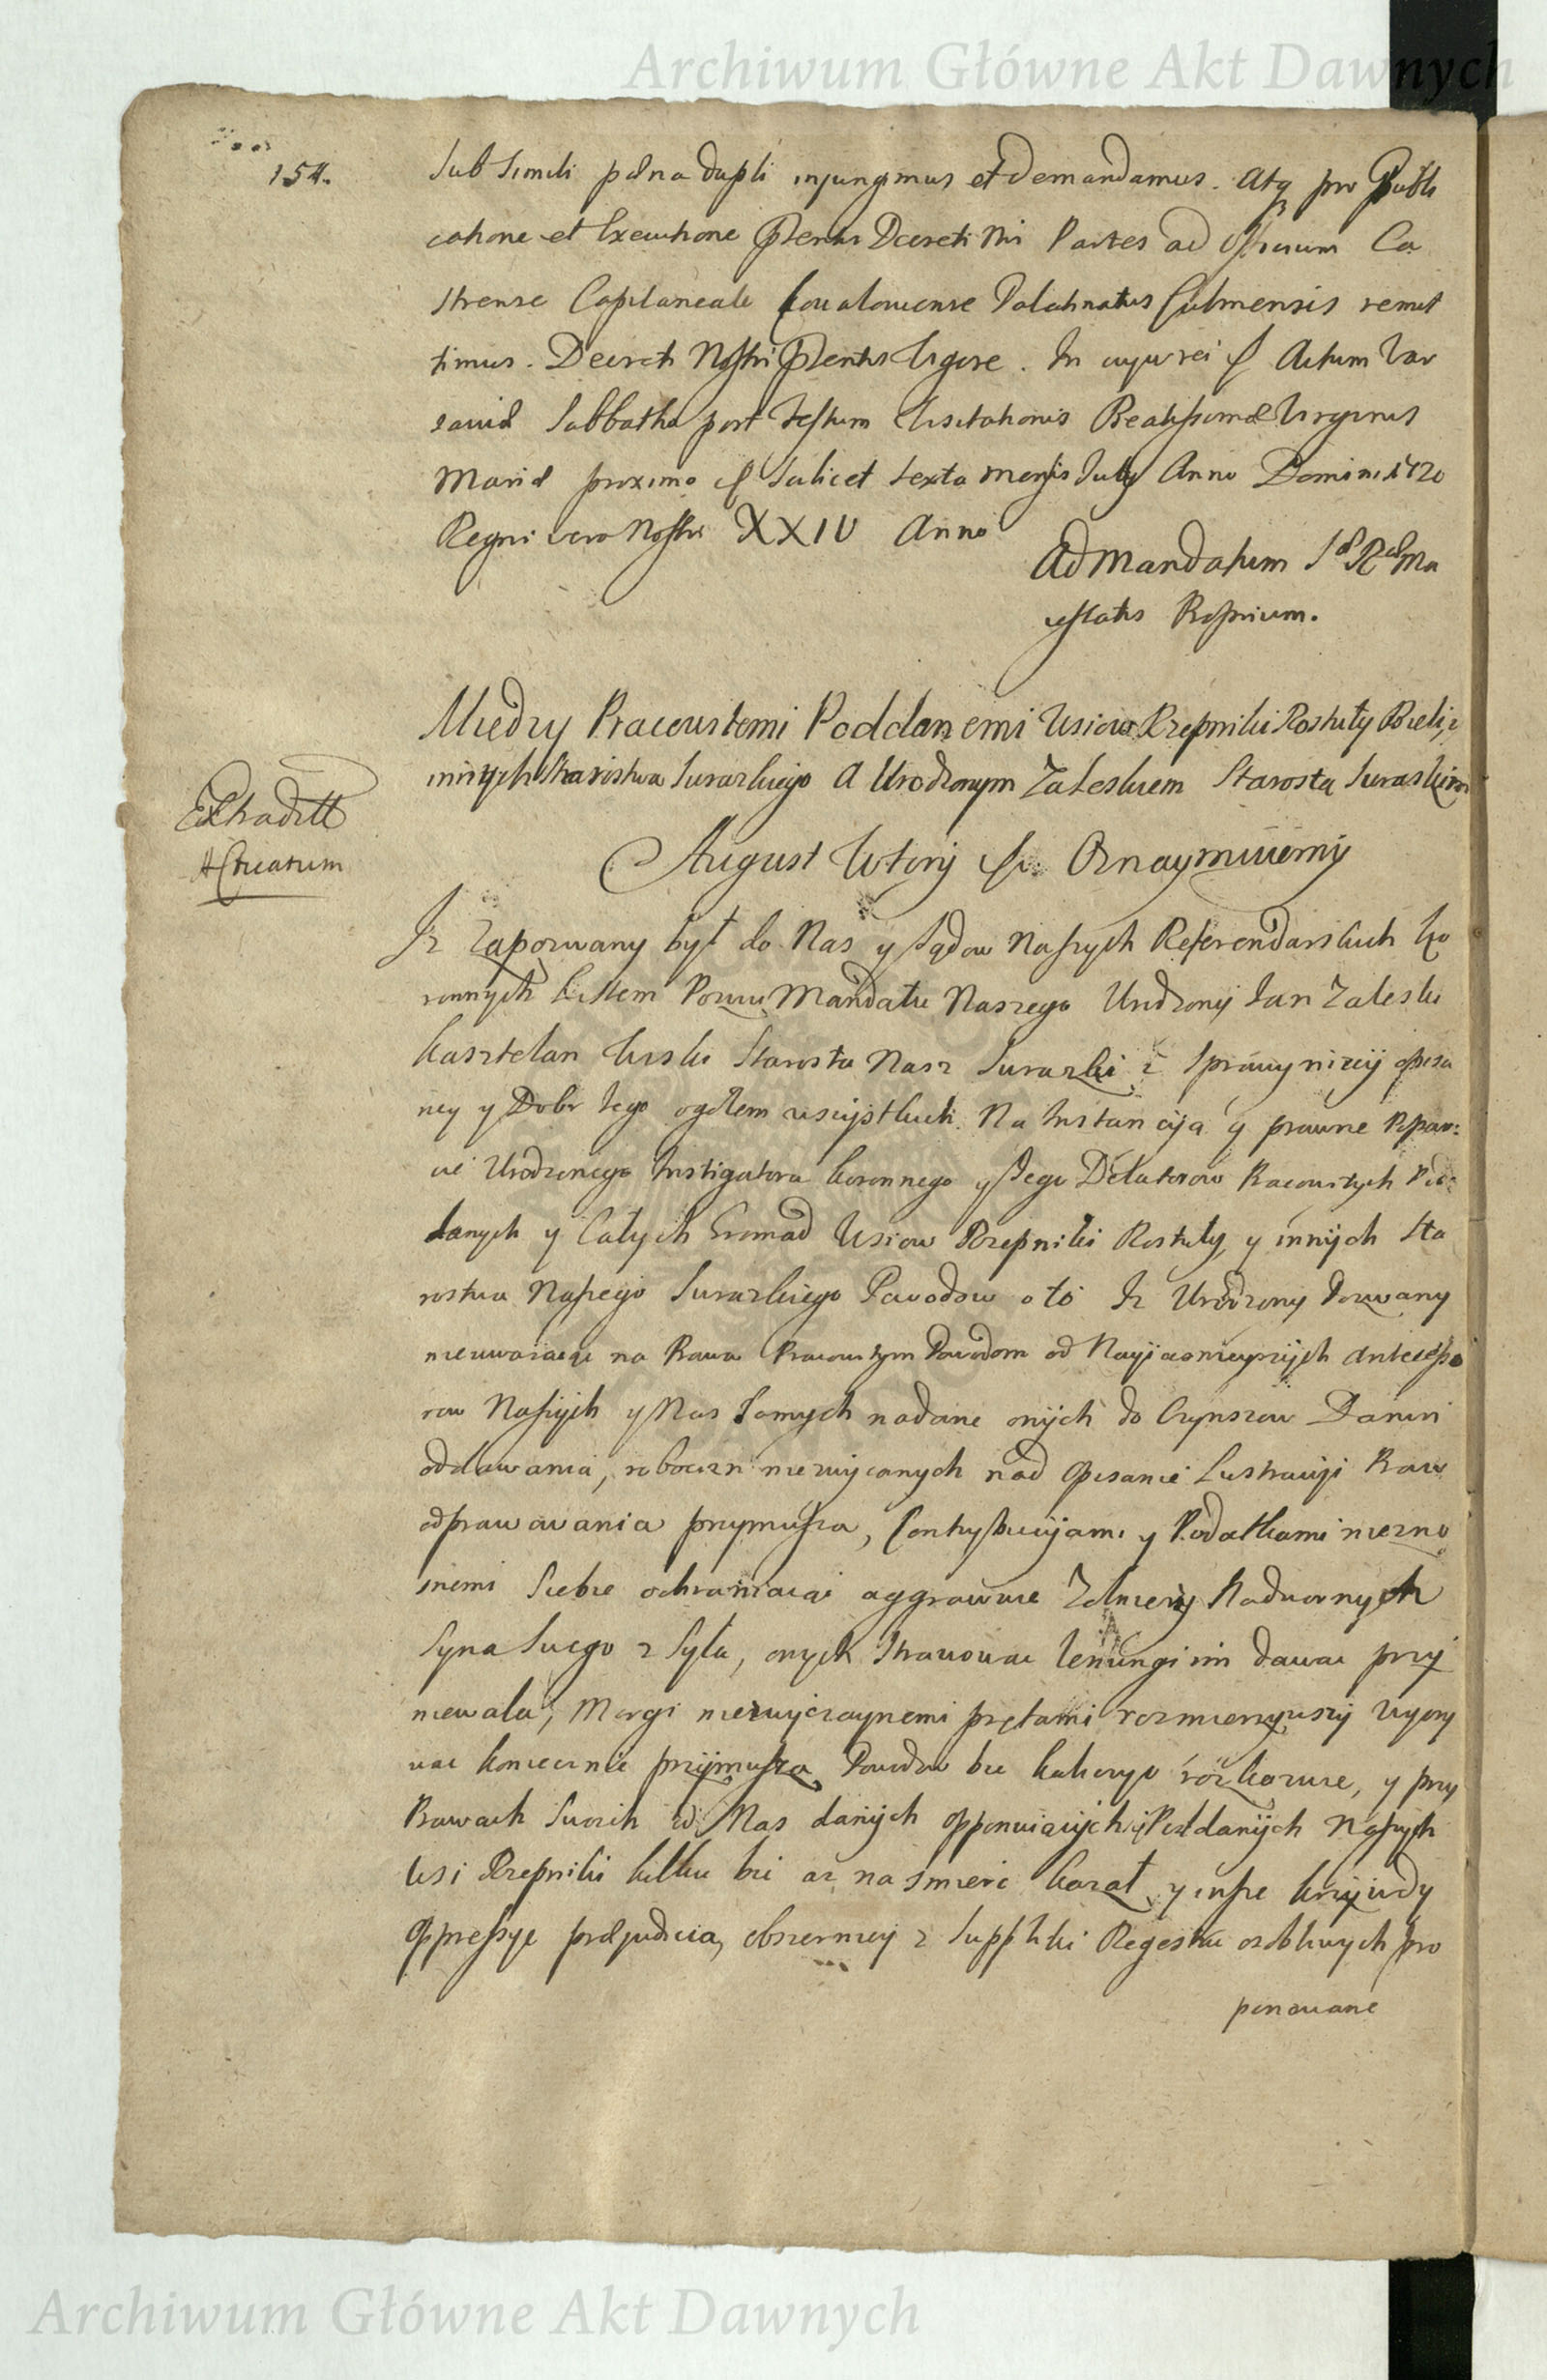 Archiwum Główne Akt Dawnych
154.
Sub simili pæna dupli injungimus et demandamus. Atq pro Publi
catione et Executione Pntis Decreti Nri Partes ad Officium Ca
strense Capitaneale Kowaloviense Palatinatus Culmensis remit
timus. Decreti Nostri Pntis Vigore. In cujus rei Actum Var
saviæ Sabbatho post Festum Visitationis Beatissimæ Virginis
Mariæ proximo Scilicet sexta Mensis July Anno Domini 1720
Regni vero Nostri XXIV Anno
Ad Mandatum S R Ma
iestatis Proprium.
Między Pracowitemi Poddanemi Wsiow Rzepniki Rostuły
innych Starostwa Surazkiego A Urodzonym Zaleskiem Starostą Suraskim
Extraditt
August Wtory Oznaymuiemy
Iż Zapozwany był do Nas y Sądow Naszych Referendarskich Ko
ronnych Listem Pozwu Mandatu Naszego Urodzony Jan Zaleski
Kasztelan Wiski Starosta Nasz Surazki z Sprawy niżej opisa
ney y Dobr Jego ogółem wszystkich. Na Instancyją y prawne Popar=
cie Urodzonego Instigatora Koronnego y Jego Delatorow Pracowitych Pod=
danych y Całych Gromad Wsiow Rzepniki Rostuły y innych Sta
rostwa Naszego Surazkiego Powodow o to Iż Urodzony Pozwany
nieuwazaiąc na Prawa Pracowitym Powodom od Nayiasnieyszych Antecesso
row Naszych y Nas Samych nadane onych do Czynszow Danin
oddawania, roboczn niezwyczanych nad Opisanie Lustracyi Praw
odprawowania przymusza, Contrybucyjami y Podatkami niezno
snemi Siebie ochraniaiąc aggrawuie Zolnierzy Nadwornych
Syna Swego z Syła, onych Strawowac Lenungi im dawac przy
niewala, Morgi niezwyczaynemi prętami rozmierzywszy wyory
wac koniecznie przymusza Powodow bić roskazuie, y przy
Prawach Swoich od Nas danych opponuiących Poddanych Naszych
Wsi Rzepniki kilku bić aż na śmierć kazał y insze krzywdy
Oppressye præjudicia, obszerniey z Suppliki Regestu osobliwych pro
ponowane
Archiwum Główne Akt Dawnych